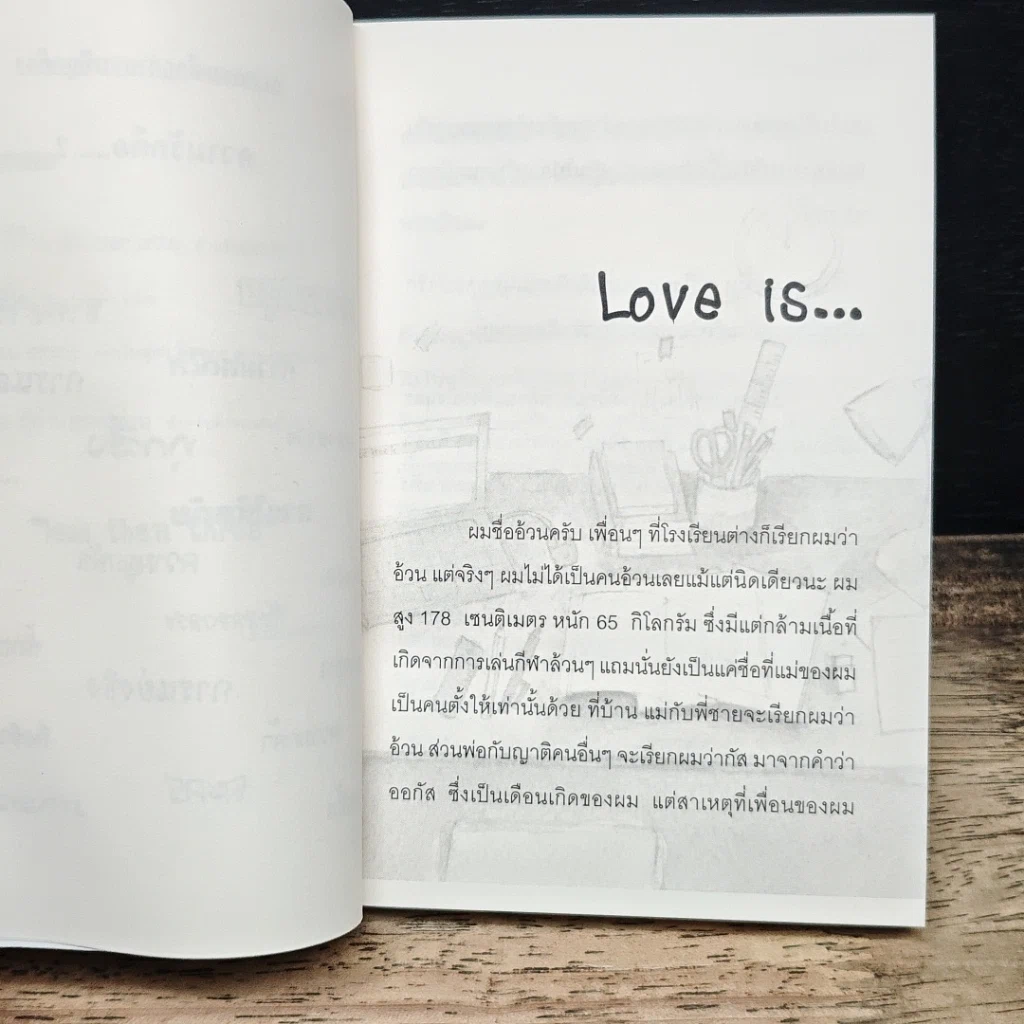 Love is...
ผมชื่ออ้วนครับ เพื่อนๆ ที่โรงเรียนต่างก็เรียกผมว่า
อ้วน แต่จริงๆ ผมไม่ได้เป็นคนอ้วนเลยแม้แต่นิดเดียวนะ ผม
สูง 178 เซนติเมตร หนัก 65 กิโลกรัม ซึ่งมีแต่กล้ามเนื้อที่
เกิดจากการเล่นกีฬาล้วนๆ แถมนั่นยังเป็นแค่ชื่อที่แม่ของผม
เป็นคนตั้งให้เท่านั้นด้วย ที่บ้าน แม่กับพี่ชายจะเรียกผมว่า
อ้วน ส่วนพ่อกับญาติคนอื่นๆ จะเรียกผมว่ากัส มาจากคำว่า
ออกัส ซึ่งเป็นเดือนเกิดของผม แต่สาเหตุที่เพื่อนของผม